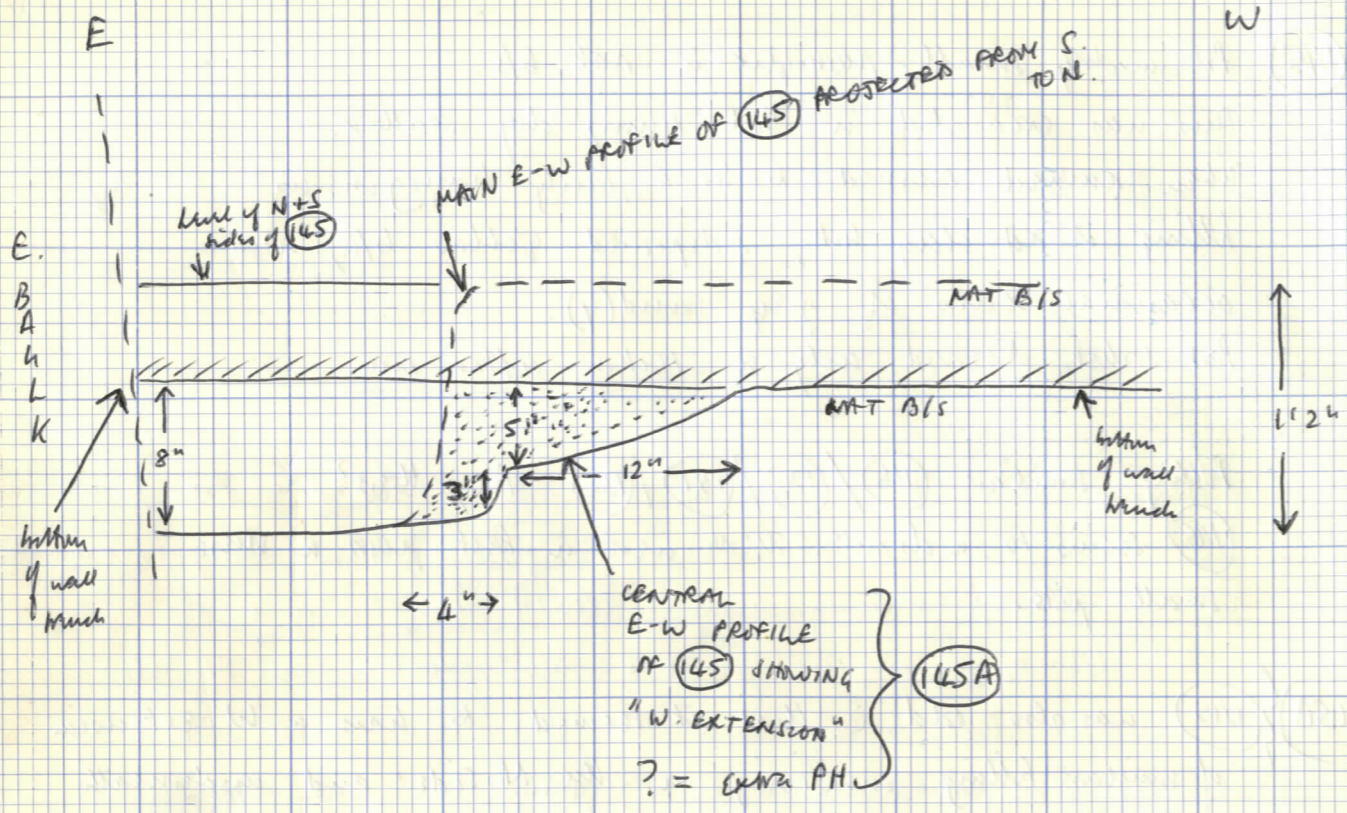 E
W
MAIN E-W PROFILE OF 145 PROJECTED FROM S.
TO N.
Level of N+S
sides of 145
E.
B
A
U
L
K
NAT B/S
NAT B/S
8"
5"
3"
12"
4"
1'2"
bottom
of wall
trench
bottom
of wall
trench
CENTRAL
E-W PROFILE
OF 145 SHOWING
"W. EXTENSION"
? = EXTRA PH.
145A